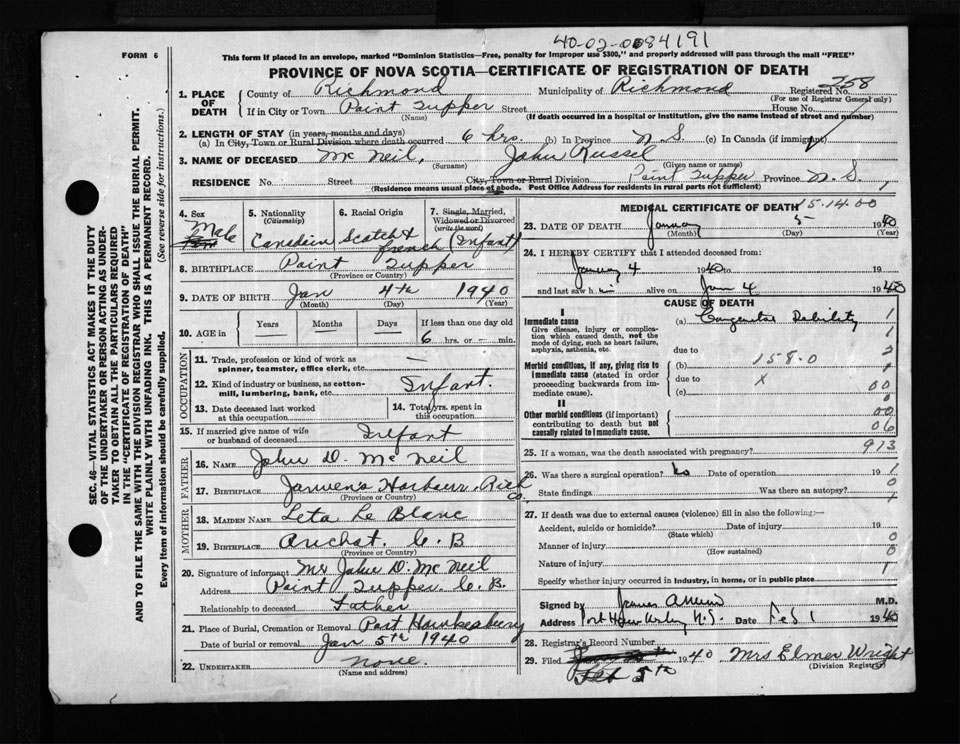 40-02-0084191
FORM 6
This form if placed in an envelope, marked "Dominion Statistics—Free, penalty for improper use $300," and properly addressed will pass through the mail "FREE"
PROVINCE OF NOVA SCOTIA—CERTIFICATE OF REGISTRATION OF DEATH
1. PLACE OF DEATH County of Richmond Municipality of Richmond Registered No. 258
(For use of Registrar General only)
If in City or Town Point Tupper Street House No.
(Name) (If death occurred in a hospital or institution, give the name instead of street and number)
2. LENGTH OF STAY (in years, months and days)
(a) In City, Town or Rural Division where death occurred 6 hrs. (b) In Province N S. (c) In Canada (if immigrant)
3. NAME OF DECEASED Mc Neil, John Russel
(Surname) (Given name or names)
RESIDENCE No. Street City, Town or Rural Division Point Tupper Province N. S. 1
(Residence means usual place of abode. Post Office Address for residents in rural parts not sufficient)
4. Sex Male
5. Nationality (Citizenship) Canadian
6. Racial Origin Scotch & French
7. Single, Married, Widowed or Divorced (write the word) (Infant)
8. BIRTHPLACE Point Tupper
(Province or Country)
9. DATE OF BIRTH Jan 4th 1940
(Month) (Day) (Year)
10. AGE in Years Months Days If less than one day old
6 hrs. or — min.
OCCUPATION
11. Trade, profession or kind of work as spinner, teamster, office clerk, etc. —
12. Kind of industry or business, as cotton-mill, lumbering, bank, etc. Infant.
13. Date deceased last worked at this occupation
14. Total yrs. spent in this occupation
15. If married give name of wife or husband of deceased Infant
FATHER
16. NAME John D. Mc Neil
17. BIRTHPLACE Harbour, Rich Co.
(Province or Country)
MOTHER
18. MAIDEN NAME Leta Le Blanc
19. BIRTHPLACE Arichat. C. B
(Province or Country)
20. Signature of informant Mr John D. Mc Neil
Address Point Tupper C. B.
Relationship to deceased Father
21. Place of Burial, Cremation or Removal Port Hawkesbury
Date of burial or removal Jan 5th 1940
22. UNDERTAKER none.
(Name and address)
MEDICAL CERTIFICATE OF DEATH 15.14.00
23. DATE OF DEATH January 5 1940
(Month) (Day) (Year)
24. I HEREBY CERTIFY that I attended deceased from:
January 4 1940 to 19
and last saw h im alive on Jan 4 1940
CAUSE OF DEATH
I
Immediate cause (a) Congenital Debility 1
Give disease, injury or complication which caused death, not the mode of dying, such as heart failure, asphyxia, asthenia, etc. 1
due to 2
Morbid conditions, if any, giving rise to immediate cause (stated in order proceeding backwards from immediate cause). (b) 158.0 1
due to X 00
(c) 0
II
Other morbid conditions (if important) contributing to death but not causally related to immediate cause. 00
06
25. If a woman, was the death associated with pregnancy? 913
26. Was there a surgical operation? No Date of operation 19 1
0
State findings Was there an autopsy? 1
27. If death was due to external causes (violence) fill in also the following:—
Accident, suicide or homicide? Date of injury 19 0
(State which)
Manner of injury 0
(How sustained)
Nature of injury 1
Specify whether injury occurred in industry, in home, or in public place
Signed by M.D.
Address Port Hawkesbury N.S. Date Feb 1 1940
28. Registrar's Record Number
29. Filed Feb 5th 1940 Mrs Elmer Wright
(Division Registrar)
SEC. 46—VITAL STATISTICS ACT MAKES IT THE DUTY
OF THE UNDERTAKER OR PERSON ACTING AS UNDER-
TAKER TO OBTAIN ALL THE PARTICULARS REQUIRED
IN THE "CERTIFICATE OF REGISTRATION OF DEATH"
AND TO FILE THE SAME WITH THE DIVISION REGISTRAR WHO SHALL ISSUE THE BURIAL PERMIT.
WRITE PLAINLY WITH UNFADING INK. THIS IS A PERMANENT RECORD.
Every item of information should be carefully supplied. (See reverse side for instructions.)